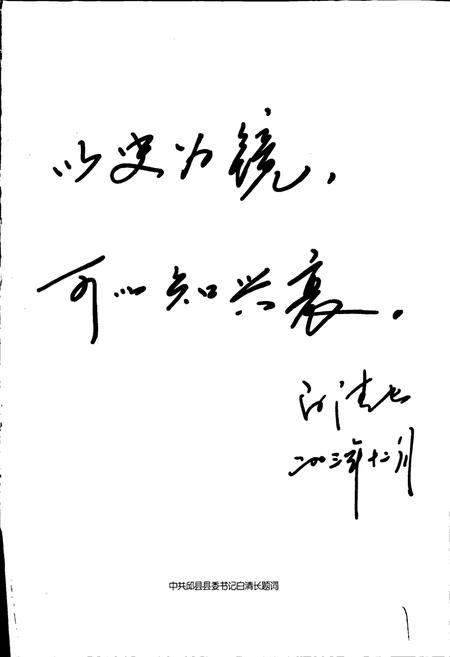 以史为镜，
可以知兴衰。
白清长
二00三年十二月
中共邱县县委书记白清长题词